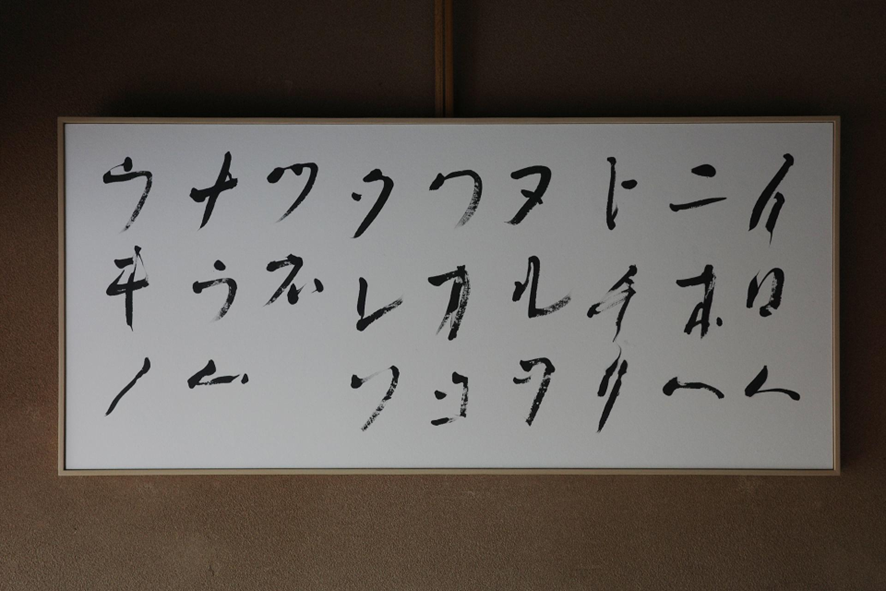 イロハ
ニホヘ
トチリ
ヌルヲ
ワカヨ
タレソ
ツネ
ナラム
ウヰノ